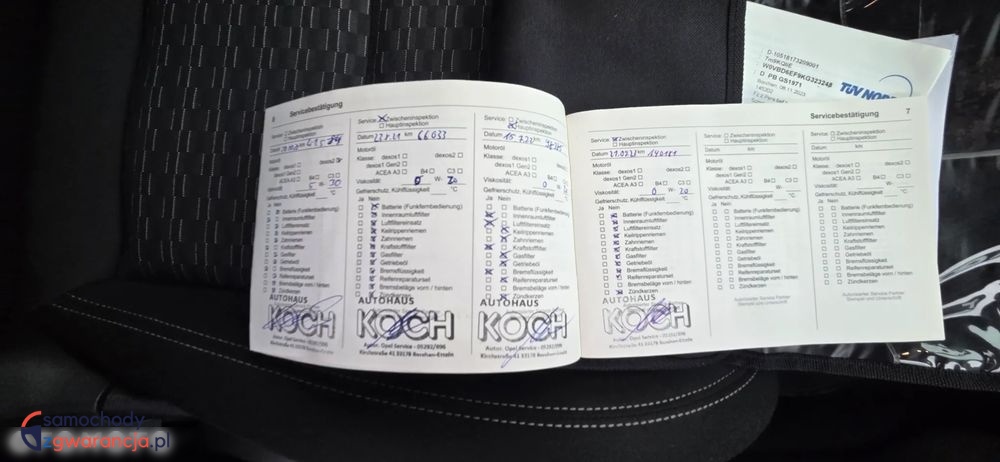 D-10518173209001
7m9KQ8E
W0VBD6EF9KG323248
D PB GS1971
Borchen 08.11.2023
TÜV NORD
6 Servicebestätigung
Service: Zwischeninspektion
Hauptinspektion
Datum km
Motoröl
Klasse: dexos1 dexos2
dexos1 Gen2
ACEA A3 B4 C3
Viskosität: 5 30
Gefrierschutz, Kühlflüssigkeit °C
Ja Nein
Batterie (Funkfernbedienung)
Innenraumluftfilter
Luftfiltereinsatz
Keilrippenriemen
Zahnriemen
Kraftstofffilter
Gasfilter
Getriebeöl
Bremsflüssigkeit
Reifenreparaturset
Bremsbeläge vorn / hinten
Zündkerzen
AUTOHAUS
KOCH
Service: Zwischeninspektion
Hauptinspektion
Datum km 66033
Motoröl
Klasse: dexos1 dexos2
dexos1 Gen2
ACEA A3 B4 C3
Viskosität: 0 W- 20
Gefrierschutz, Kühlflüssigkeit °C
Ja Nein
Batterie (Funkfernbedienung)
Innenraumluftfilter
Luftfiltereinsatz
Keilrippenriemen
Zahnriemen
Kraftstofffilter
Gasfilter
Getriebeöl
Bremsflüssigkeit
Reifenreparaturset
Bremsbeläge vorn / hinten
Zündkerzen
AUTOHAUS
KOCH
Autor. Opel Service - 05292/896
Kirchstraße 41 33178 Borchen-Etteln
Service: Zwischeninspektion
Hauptinspektion
Datum km
Motoröl
Klasse: dexos1
dexos1 Gen2
ACEA A3
Viskosität: 0
Gefrierschutz, Kühlflüssigkeit
Ja Nein
Batterie (Funkfernbedienung)
Innenraumluftfilter
Luftfiltereinsatz
Keilrippenriemen
Zahnriemen
Kraftstofffilter
Gasfilter
Getriebeöl
Bremsflüssigkeit
Reifenreparaturset
Bremsbeläge vorn / hinten
Zündkerzen
AUTOHAUS
KOCH
Autor. Opel Service - 05292/896
Kirchstraße 41 33178 Borchen-Etteln
Servicebestätigung 7
Service: Zwischeninspektion
Hauptinspektion
Datum km
Motoröl
Klasse: dexos1 dexos2
dexos1 Gen2
ACEA A3 B4 C3
Viskosität: 0 W- 20
Gefrierschutz, Kühlflüssigkeit °C
Ja Nein
Batterie (Funkfernbedienung)
Innenraumluftfilter
Luftfiltereinsatz
Keilrippenriemen
Zahnriemen
Kraftstofffilter
Gasfilter
Getriebeöl
Bremsflüssigkeit
Reifenreparaturset
Bremsbeläge vorn / hinten
Zündkerzen
AUTOHAUS
KOCH
Service: Zwischeninspektion
Hauptinspektion
Datum km
Motoröl
Klasse: dexos1 dexos2
dexos1 Gen2
ACEA A3 B4 C3
Viskosität: W-
Gefrierschutz, Kühlflüssigkeit °C
Ja Nein
Batterie (Funkfernbedienung)
Innenraumluftfilter
Luftfiltereinsatz
Keilrippenriemen
Zahnriemen
Kraftstofffilter
Gasfilter
Getriebeöl
Bremsflüssigkeit
Reifenreparaturset
Bremsbeläge vorn / hinten
Zündkerzen
Autorisierter Service Partner
Stempel und Unterschrift
Service: Zwischeninspektion
Hauptinspektion
Datum km
Motoröl
Klasse: dexos1 dexos2
dexos1 Gen2
ACEA A3 B4 C3
Viskosität: W-
Gefrierschutz, Kühlflüssigkeit °C
Ja Nein
Batterie (Funkfernbedienung)
Innenraumluftfilter
Luftfiltereinsatz
Keilrippenriemen
Zahnriemen
Kraftstofffilter
Gasfilter
Getriebeöl
Bremsflüssigkeit
Reifenreparaturset
Bremsbeläge vorn / hinten
Zündkerzen
Autorisierter Service Partner
Stempel und Unterschrift
samochody
zgwarancja.pl